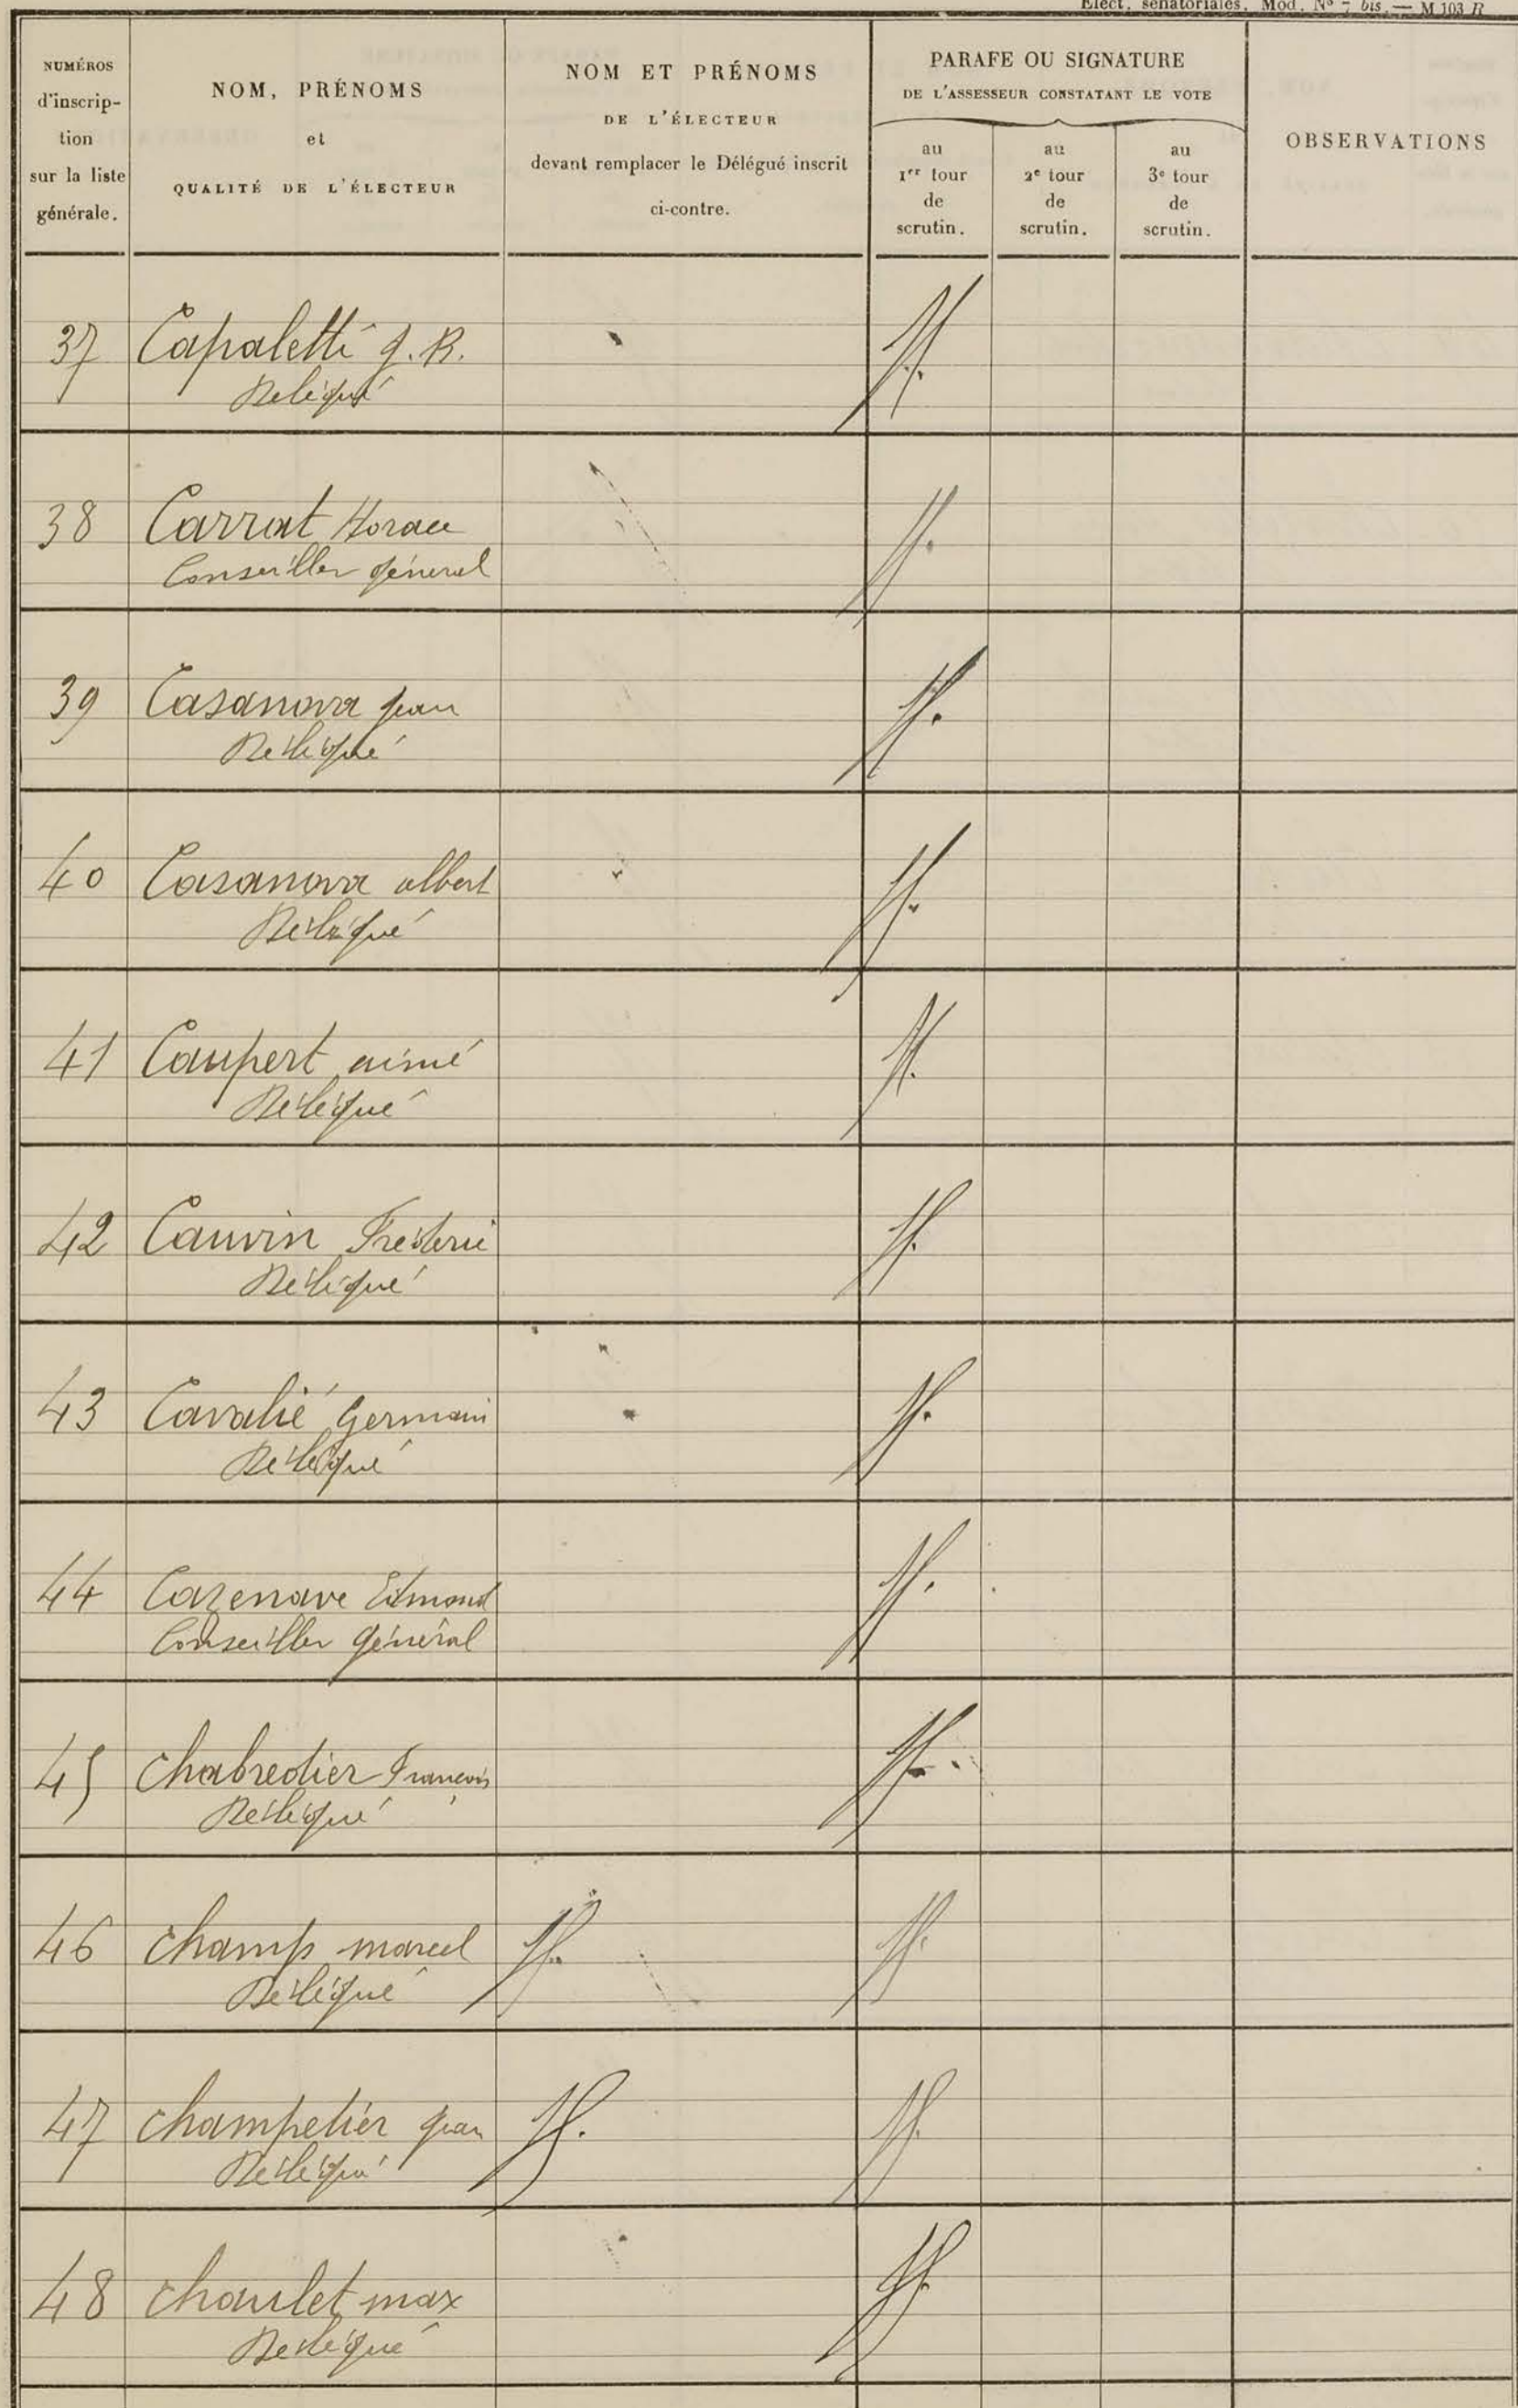 Élect. sénatoriales. Mod. Nº 7 bis. — M 103 R
NUMÉROS
d'inscrip-
tion
sur la liste
générale.
NOM, PRÉNOMS
et
QUALITÉ DE L'ÉLECTEUR
NOM ET PRÉNOMS
DE L'ÉLECTEUR
devant remplacer le Délégué inscrit
ci-contre.
PARAFE OU SIGNATURE
DE L'ASSESSEUR CONSTATANT LE VOTE
au
1er tour
de
scrutin.
au
2e tour
de
scrutin.
au
3e tour
de
scrutin.
OBSERVATIONS
37 Capaletti J. B.
Délégué
38 Carrat Horace
Conseiller général
39 Casanova Jean
Délégué
40 Casanova albert
Délégué
41 Caupert aimé
Délégué
42 Cauvin Frédéric
Délégué
43 Cavalié Germain
Délégué
44 Cazenave Edmond
Conseiller général
45 Chabredier François
Délégué
46 Champ marcel
Délégué
47 Champetier Jean
Délégué
48 Chaulet max
Délégué